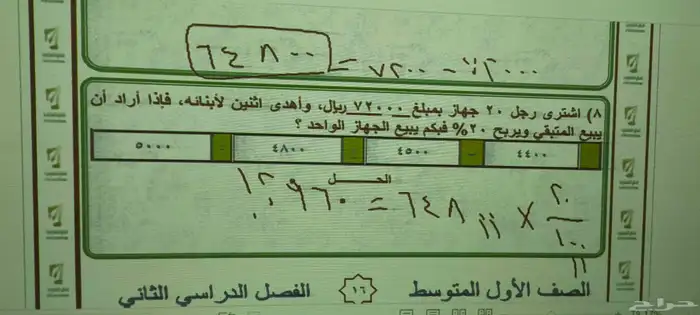 ٦٤٨٠٠ = ٧٢٠٠ - ٧٢٠٠٠
٨) اشترى رجل ٢٠ جهاز بمبلغ ٧٢٠٠٠ ريال، وأهدى اثنين لأبنائه، فإذا أراد أن
يبيع المتبقي ويربح ٢٠% فبكم يبيع الجهاز الواحد ؟
٤٤٠٠ ٤٥٠٠ ٤٨٠٠ ٥٠٠٠
الحـــل
١٢٩٦٠ = ٦٤٨ × ٢٠ / ١٠٠
الصف الأول المتوسط ١٦ الفصل الدراسي الثاني
حراج